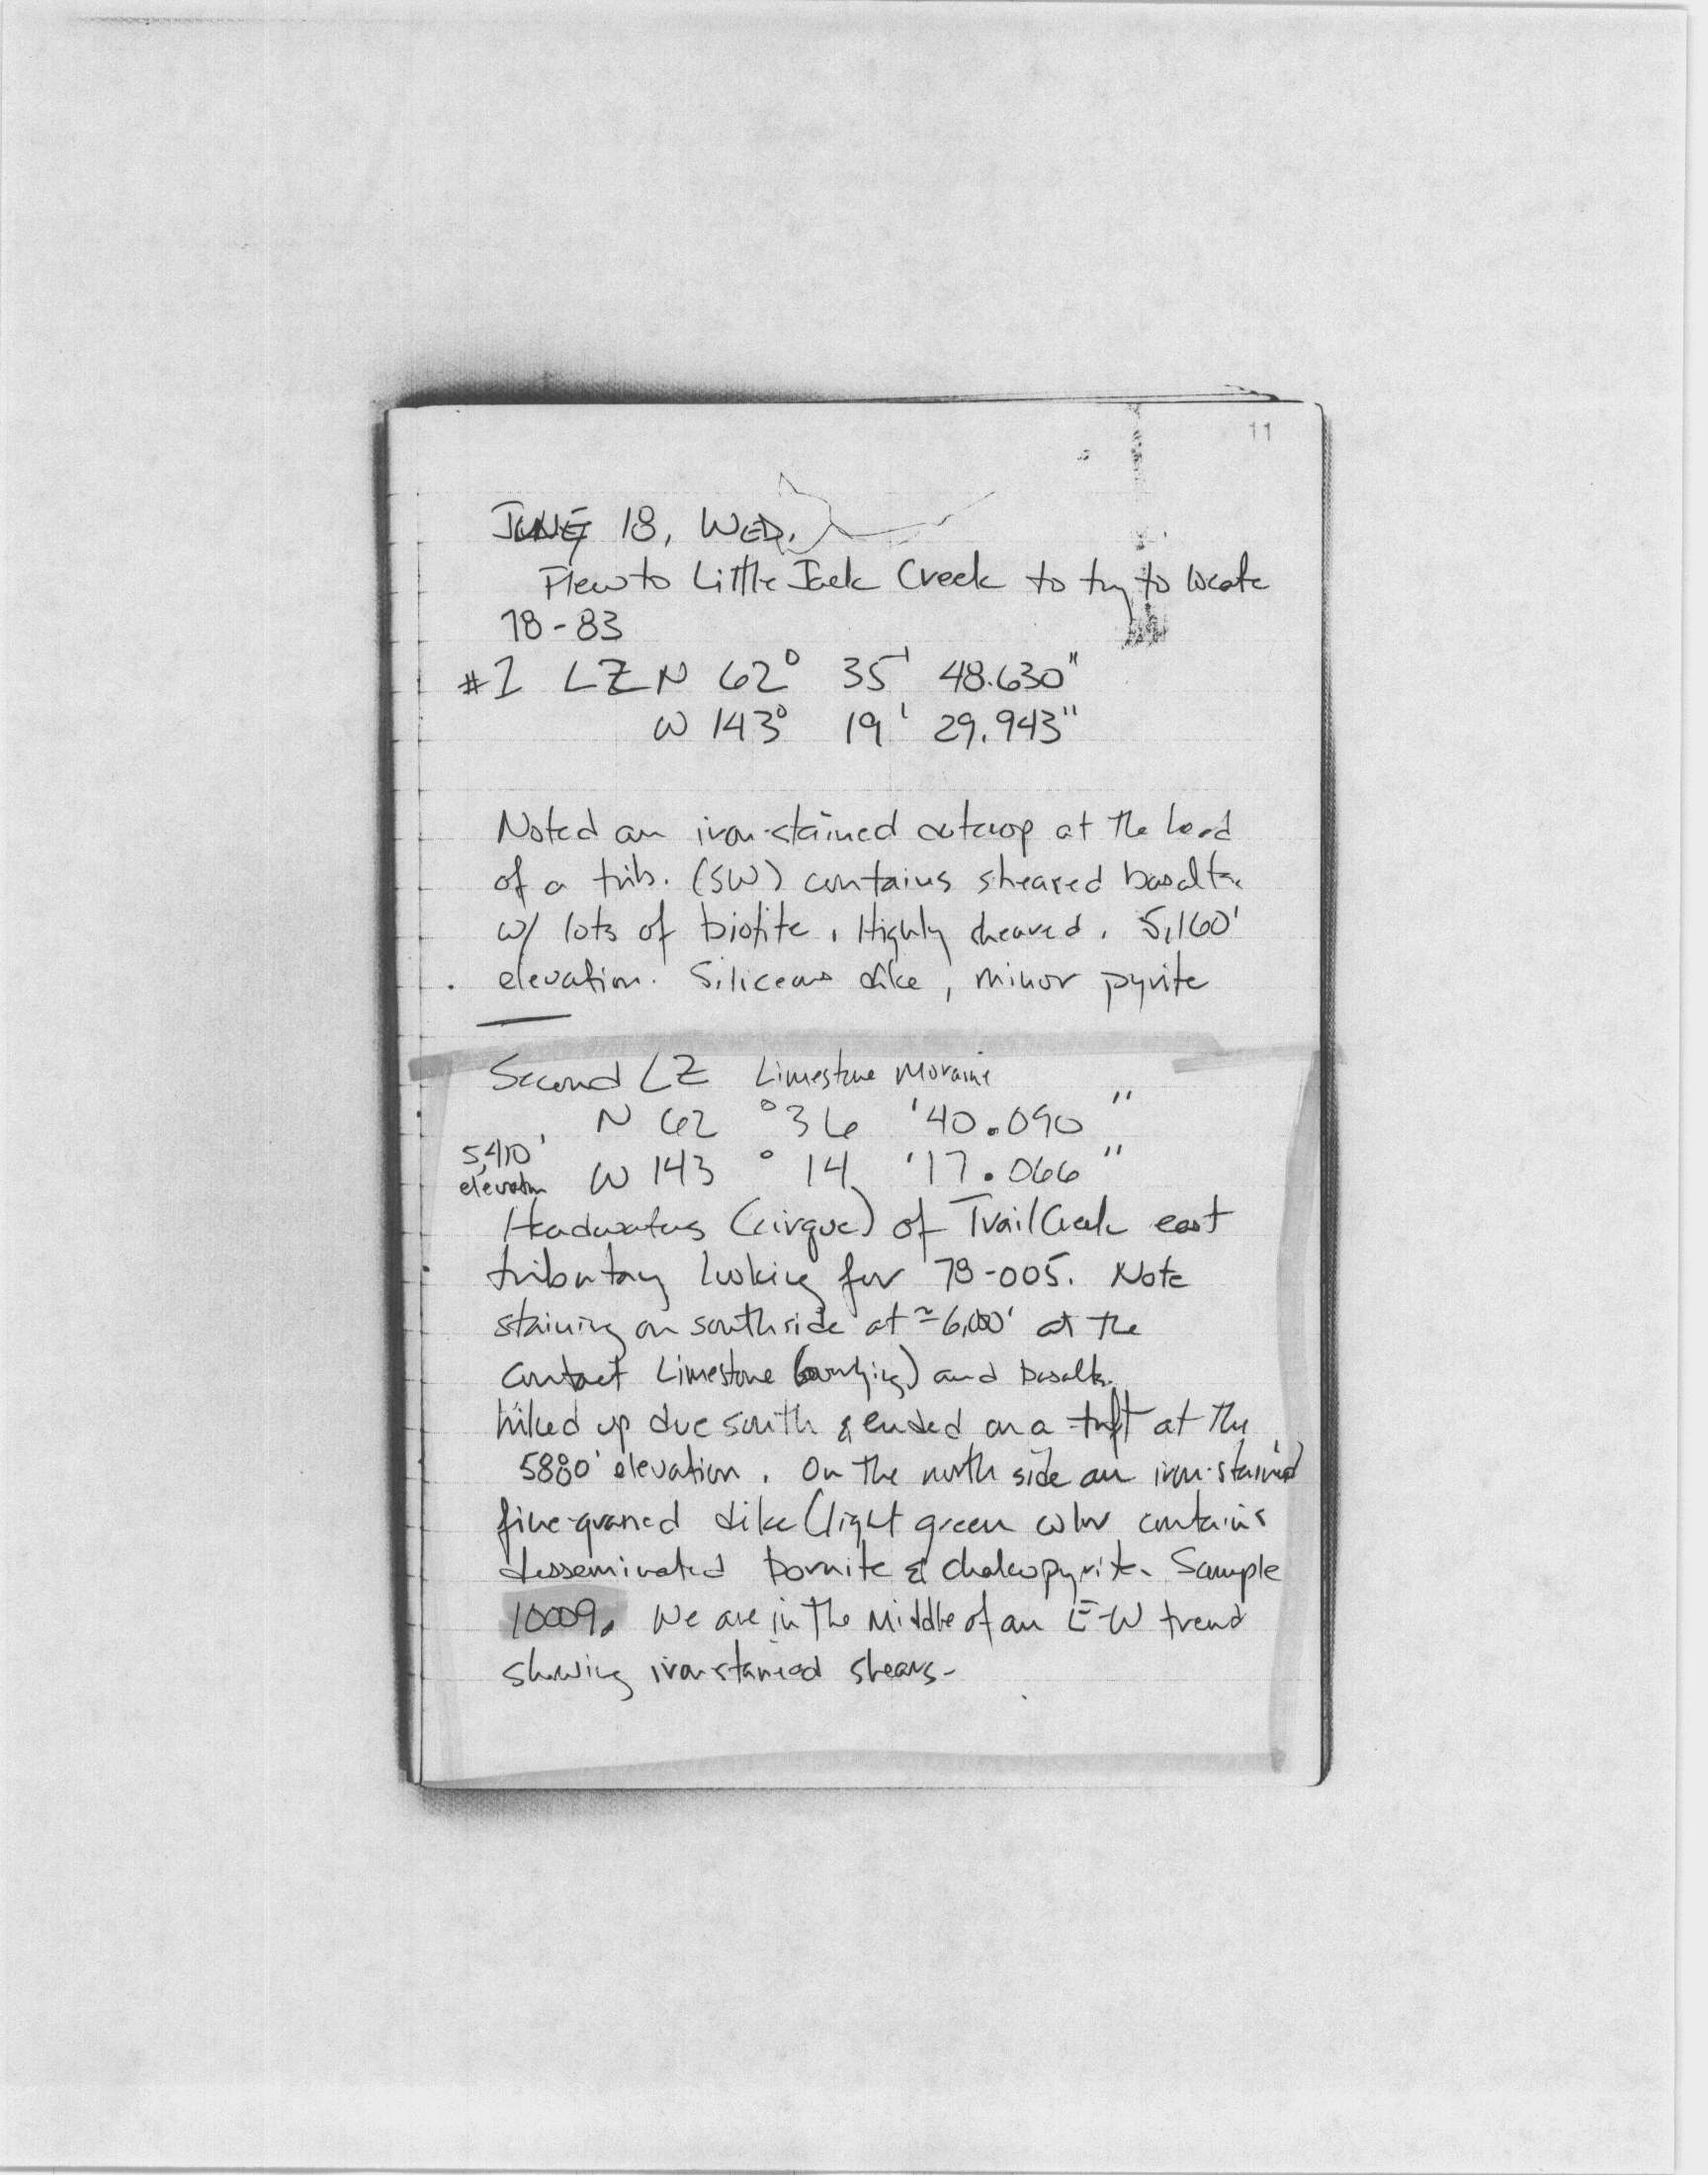 11
JUNE 18, WED.
Flew to Little Jack Creek to try to locate
78-83
#1 LZ N 62° 35' 48.630"
W 143° 19' 29.943"
Noted an iron-stained outcrop at the head
of a trib. (SW) contains sheared basalt
w/ lots of biotite. Highly sheared. 5,160'
elevation. Siliceous dike, minor pyrite
Second LZ Limestone Moraine
N 62 ° 36 ' 40.090 "
5,410'
elevation W 143 ° 14 ' 17.066 "
Headwaters (cirque) of Trail Creek east
tributary looking for 78-005. Note
staining on south side at ≈ 6,000' at the
contact Limestone and basalt.
hiked up due south & ended on a at the
5880' elevation. On the north side an iron-stained
fine-graned dike (light green color contains
desseminated bornite & chalcopyrite. Sample
10009. We are in the middle of an E-W trend
showing iron stained shears-